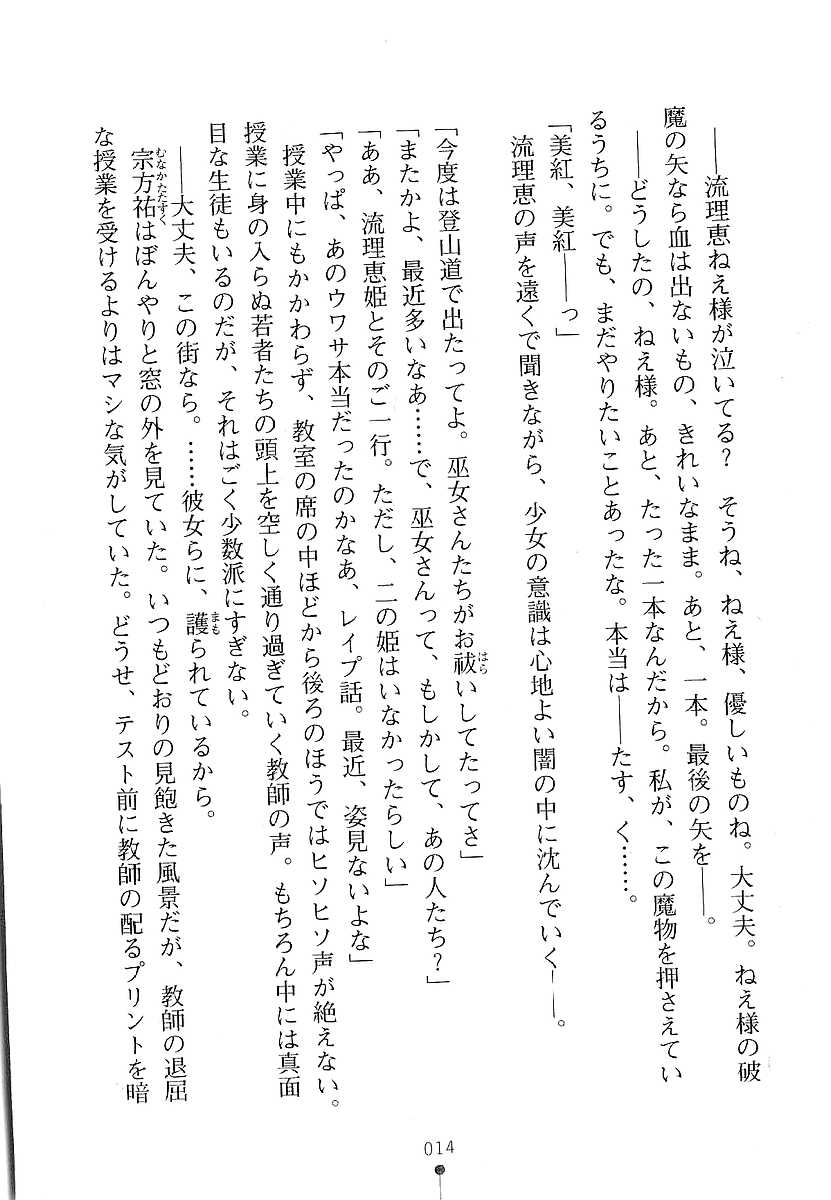 ――流理恵ねえ様が泣いてる？　そうね、ねえ様、優しいものね。大丈夫。ねえ様の破
魔の矢なら血は出ないもの、きれいなまま。あと、一本。最後の矢を――。
――どうしたの、ねえ様。あと、たった一本なんだから。私が、この魔物を押さえてい
るうちに。でも、まだやりたいことあったな。本当は――たす、く……。
「美紅、美紅――っ」
流理恵の声を遠くで聞きながら、少女の意識は心地よい闇の中に沈んでいく――。
「今度は登山道で出たってよ。巫女さんたちがお祓いしてたってさ」
はら
「またかよ、最近多いなあ……で、巫女さんって、もしかして、あの人たち？」
「ああ、流理恵姫とそのご一行。ただし、二の姫はいなかったらしい」
「やっぱ、あのウワサ本当だったのかなあ、レイプ話。最近、姿見ないよな」
授業中にもかかわらず、教室の席の中ほどから後ろのほうではヒソヒソ声が絶えない。
授業に身の入らぬ若者たちの頭上を空しく通り過ぎていく教師の声。もちろん中には真面
目な生徒もいるのだが、それはごく少数派にすぎない。
――大丈夫、この街なら。……彼女らに、護られているから。
まも
宗方祐はぼんやりと窓の外を見ていた。いつもどおりの見飽きた風景だが、教師の退屈
むなかたたすく
な授業を受けるよりはマシな気がしていた。どうせ、テスト前に教師の配るプリントを暗
014